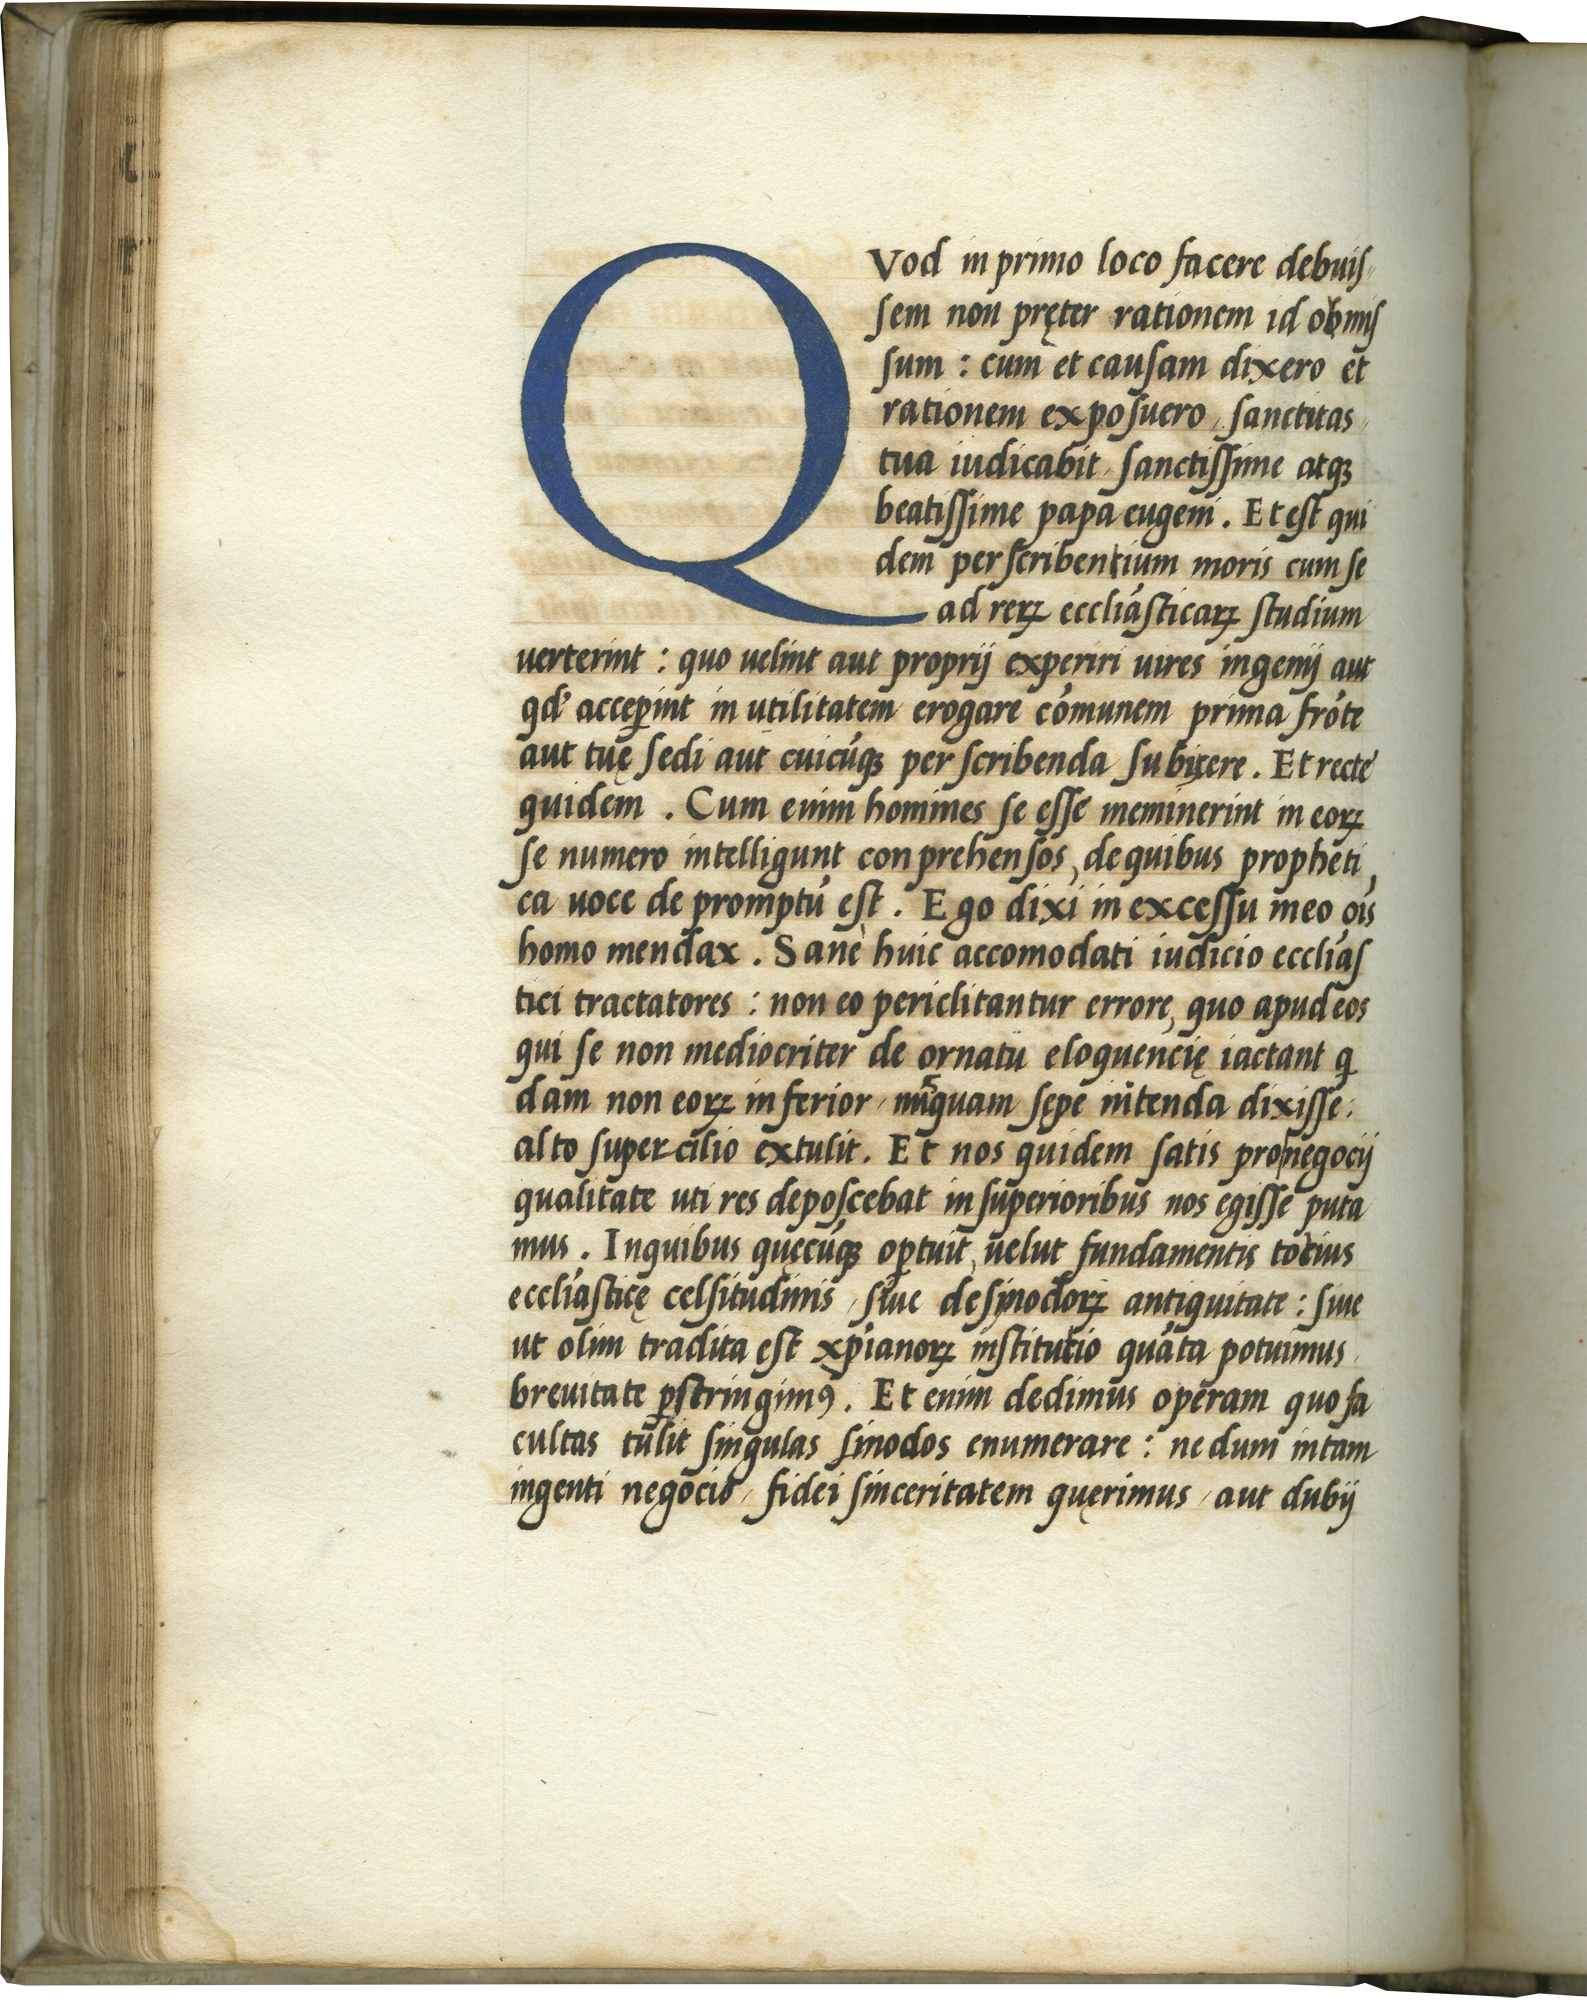 QVod in primo loco facere debuis-
sem non pręter rationem id obmis
sum : cum et causam dixero et
rationem exposuero, sanctitas
tua iudicabit, sanctissime atqꝫ
beatissime papa eugeni. Et est qui
dem perscribentium moris cum se
ad rerꝝ eccliásticaꝝ studium
verterint : quo velint aut proprij experiri vires ingenij aut
qd' acceꝑint in utilitatem erogare cōmunem prima frōte
aut tuę sedi aut cuicūqꝫ perscribenda subiycere. Et recte
quidem. Cum enim homines se esse meminerint in eoꝝ
se numero intelligunt conprehensos, de quibus propheti,
ca uoce de promptū est. Ego dixi in excessu meo oīs
homo mendax. Sane huic accomodati iudicio eccliás
tici tractatores : non eo periclitantur errore, quo apud eos
qui se non mediocriter de ornatu eloquencię iactant q̄
dam non eoꝝ inferior, nūquam sępe nītenda dixisse :
alto supercilio extulit. Et nos quidem satis pro negocij
qualitate uti res deposcebat in superioribus nos egisse puta
mus. In quibus quęcūqꝫ oꝑtuit, velut fundamentis totius
eccliásticę celsitudinis, siue de sinodoꝝ antiquitate : siue
ut olim tradita est xp̄ianoꝝ institutio quāta potuimus,
breuitate ꝑstringimꝰ. Et enim dedimus operam quo fa
cultas tulit singulas sinodos enumerare : nedum in tam
ingenti negocio, fidei sinceritatem quęrimus, aut dubij